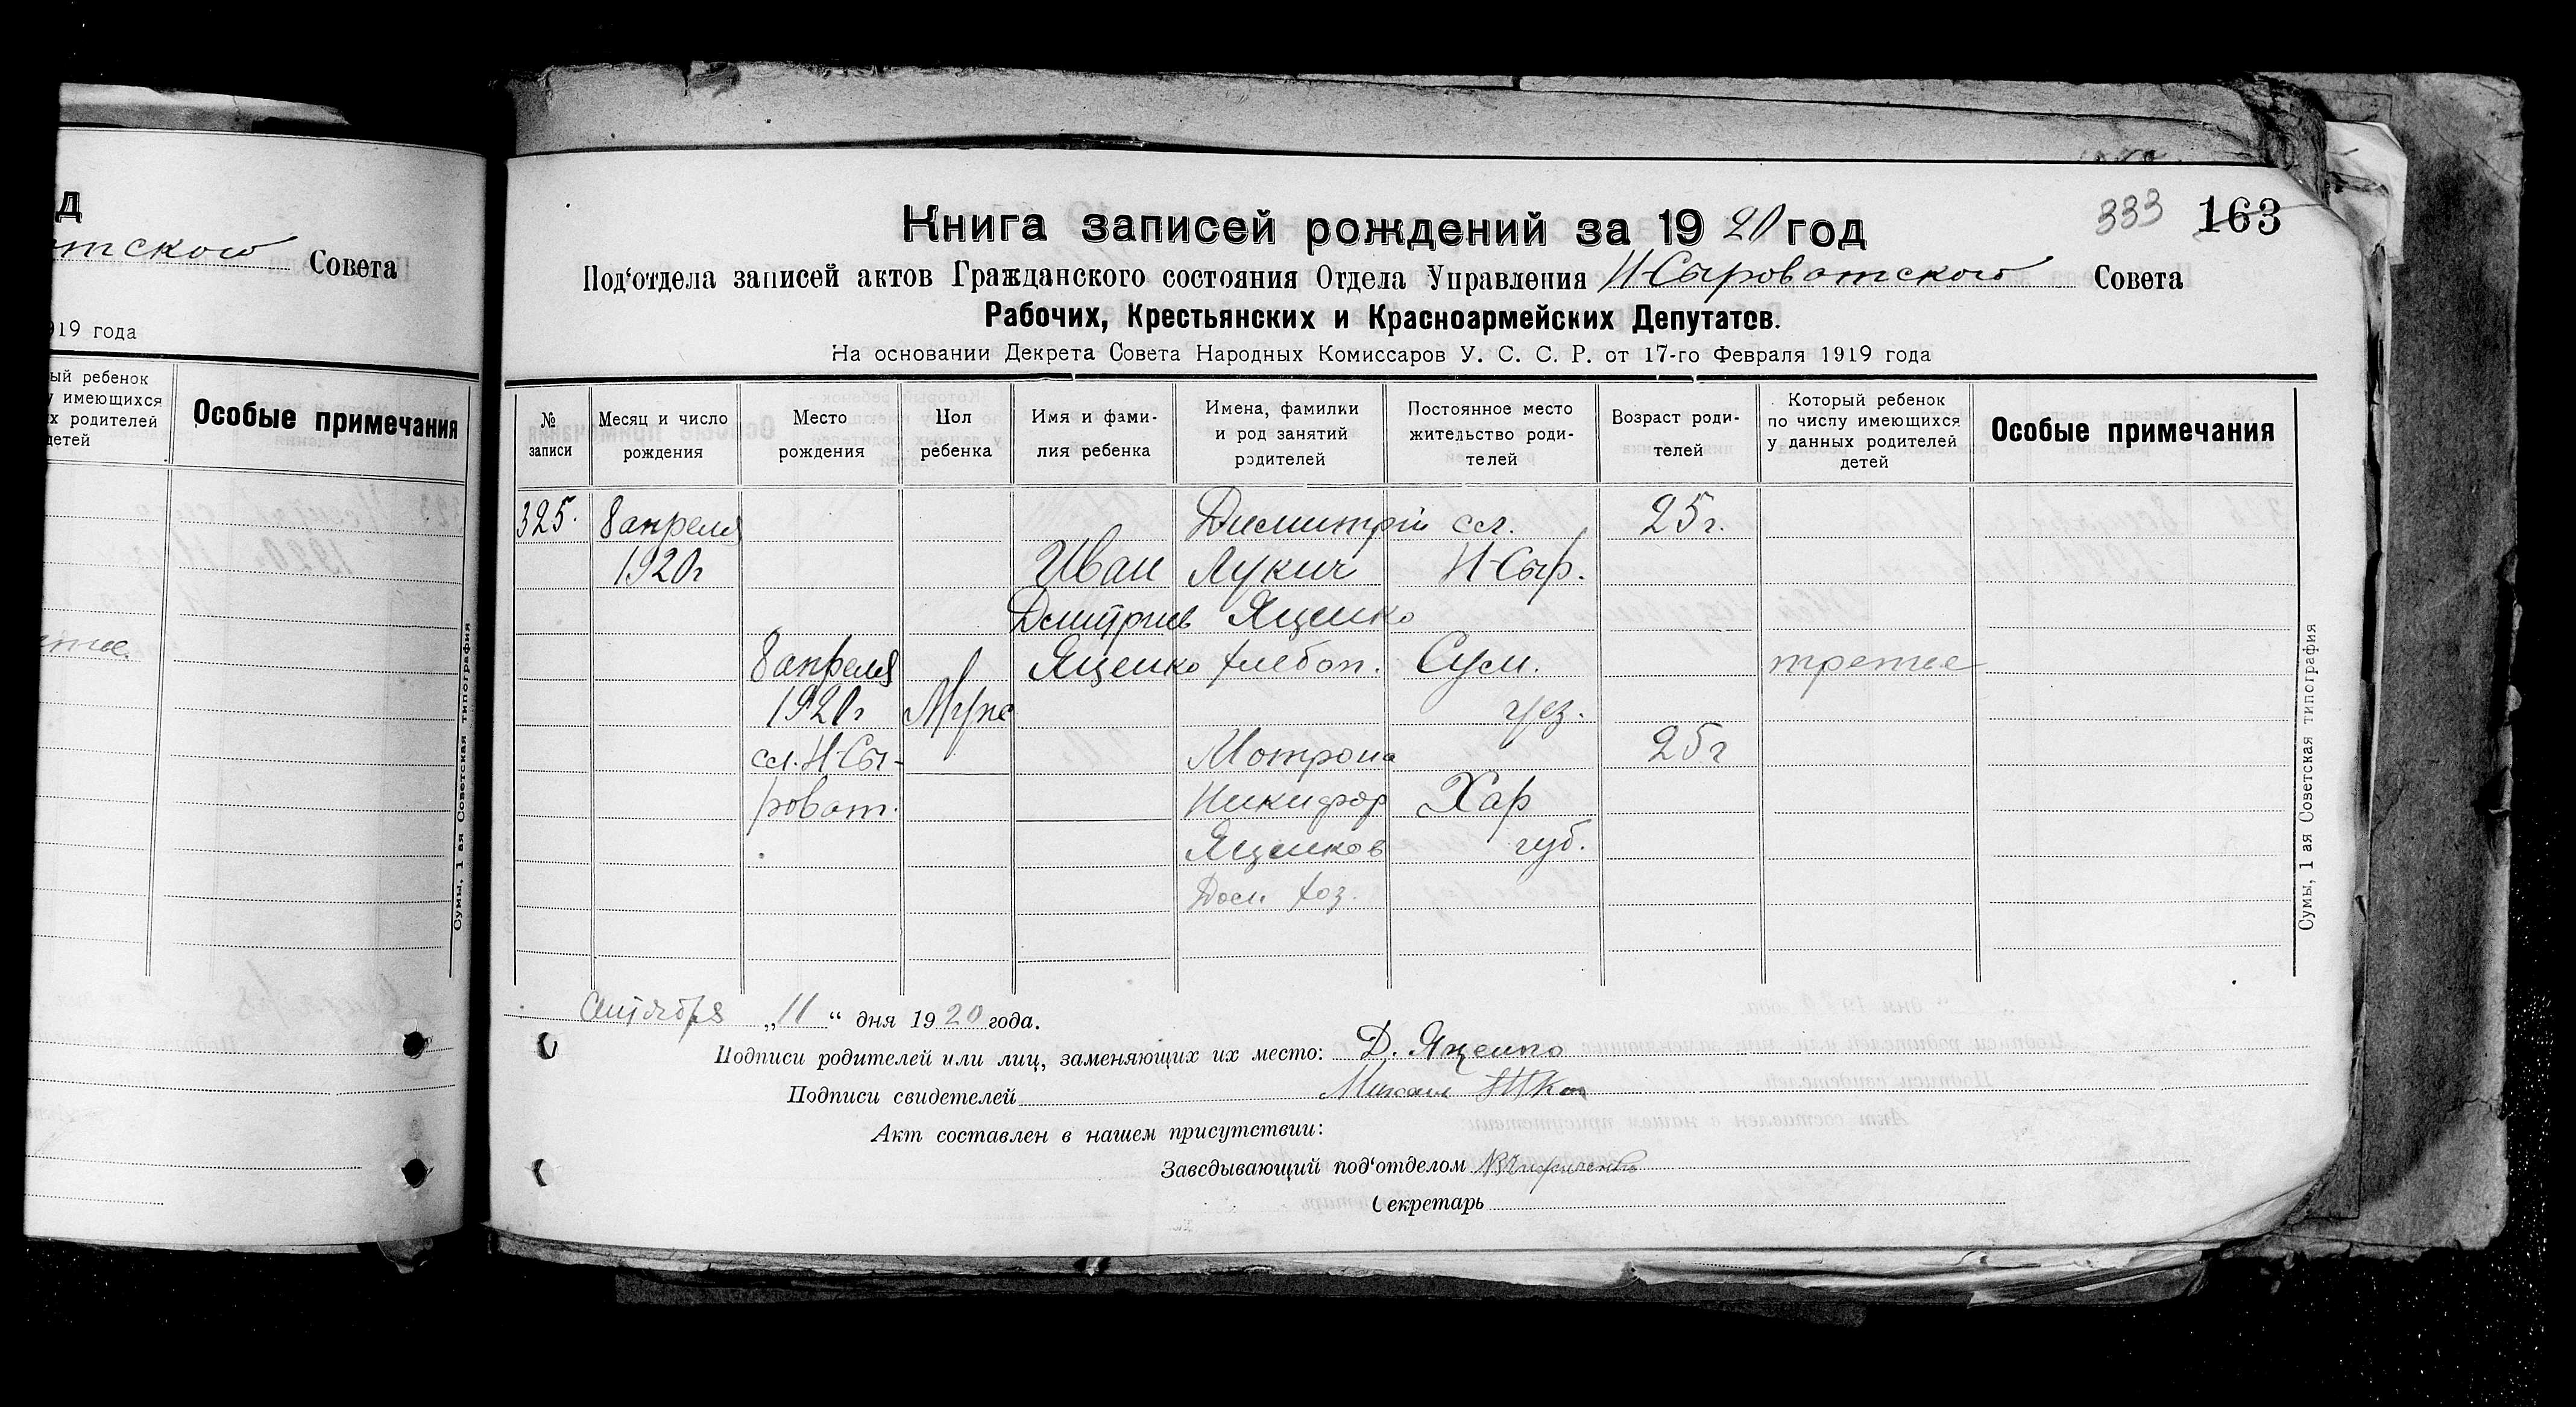 д
отского Совета
919 года
ый ребенок
у имеющихся
х родителей
детей
Особые примечания
Сумы, 1 ая Советская типография
333 163
Книга записей рождений за 1920 год
Под‘отдела записей актов Гражданского состояния Отдела Управления Н-Сыроватского Совета
Рабочих, Крестьянских и Красноармейских Депутатов.
На основании Декрета Совета Народных Комиссаров У. С. С. Р. от 17-го Февраля 1919 года
№ записи
Месяц и число рождения
Место рождения
Пол ребенка
Имя и фами-
лия ребенка
Имена, фамилии
и род занятий
родителей
Постоянное место
жительство роди-
телей
Возраст роди-
телей
Который ребенок
по числу имеющихся
у данных родителей
детей
Особые примечания
325. 8 апреля Димитрий сл. 25 г.
1920 г Иван Лукич Н-Сыр.
Дмитриев Ященко
8 апреля Ященко хлебоп. Сум. третье
1920 г Муж уез.
сл. Н-Сы- Мотрона 25 г
роват. Никифор Хар
Ященков губ.
Дом хоз.
Сентября „11“ дня 1920 года.
Подписи родителей или лиц, заменяющих их место: Д. Ященко
Подписи свидетелей
Акт составлен в нашем присутствии:
Заведывающий под‘отделом
Секретарь
Сумы, 1 ая Советская типография